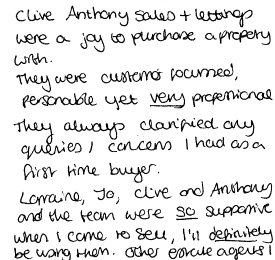 Clive Anthony sales + lettings
were a joy to purchase a property
with.
They were customer focussed,
personable yet very professional
They always clarified any
queries / concerns I had as a
first time buyer.
Lorraine, Jo, Clive and Anthony
and the team were so supportive
when I come to sell, I'll definitely
be using them. Other estate agents